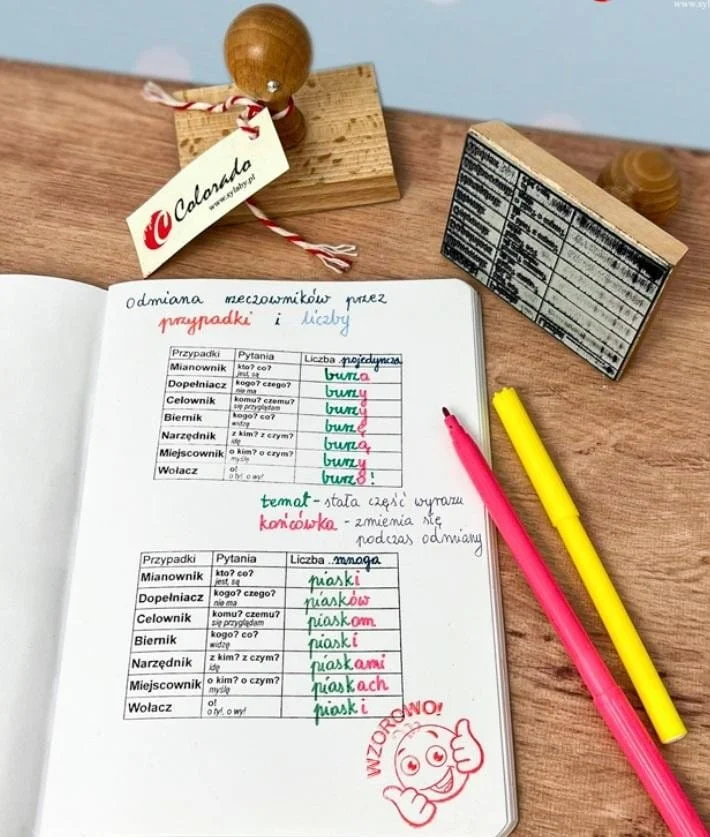 Colorado
www.sylaby.pl
odmiana rzeczowników przez
przypadki i liczby
Przypadki Pytania Liczba pojedyncza
Mianownik kto? co? burza
jest, są
Dopełniacz kogo? czego? burzy
nie ma
Celownik komu? czemu? burzy
się przyglądam
Biernik kogo? co? burzę
widzę
Narzędnik z kim? z czym? burzą
idę
Miejscownik o kim? o czym? burzy
myślę
Wołacz o! burzo!
o ty!, o wy!
temat - stała część wyrazu
końcówka - zmienia się
podczas odmiany
Przypadki Pytania Liczba mnoga
Mianownik kto? co? piaski
jest, są
Dopełniacz kogo? czego? piasków
nie ma
Celownik komu? czemu? piaskom
się przyglądam
Biernik kogo? co? piaski
widzę
Narzędnik z kim? z czym? piaskami
idę
Miejscownik o kim? o czym? piaskach
myślę
Wołacz o! piaski
o ty!, o wy!
WZOROWO!